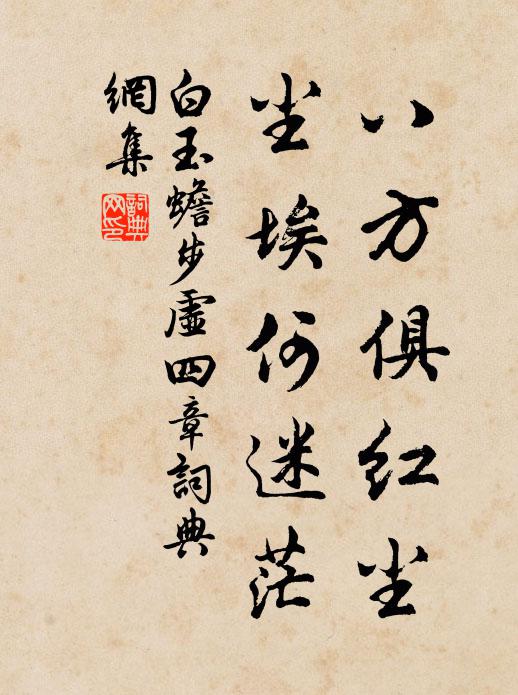 八方俱红尘
尘埃何迷茫
白玉蟾步虛四章詞典
網集
詞典
网印